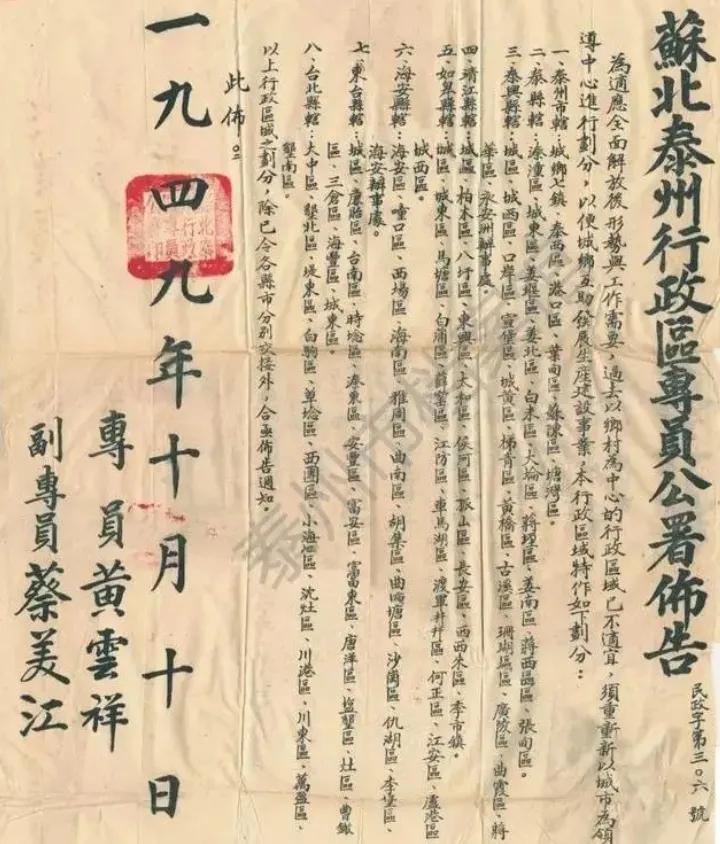 蘇北泰州行政區專員公署佈告
民政字第三〇六號
為適應全面解放後形勢與工作需要，過去以鄉村為中心的行政區域已不適宜，須重新以城市為領
導中心進行劃分，以便城鄉互助發展生產建設事業，本行政區域特作如下劃分：
一、泰州市轄：城鄉七鎮、泰西區、港口區、葉甸區、蘇陳區、塘灣區。
二、泰縣轄：溱潼區、城東區、姜堰區、姜北區、白米區、大垛區、蔣垛區、姜南區、蔣西區、張甸區。
三、泰興縣轄：城區、城西區、口岸區、宣堡區、城黃區、橫青區、黃橋區、古溪區、珊瑚區、廣陵區、曲霞區、蔣
華區、永安洲辦事處。
四、靖江縣轄：城區、柏木區、八圩區、東興區、太和區、侯河區、孤山區、長安區、西西來區、李市鎮。
五、如皋縣轄：城區、城東區、馬塘區、白蒲區、薛窰區、江防區、車馬湖區、渡軍井區、何正區、江安區、盧港區
城西區。
六、海安縣轄：海安區、曈口區、西場區、海南區、雅周區、曲南區、胡集區、曲塘區、沙崗區、仇湖區、李堡區、
海安辦事處。
七、東台縣轄：城區、廉貽區、台南區、時埝區、溱東區、安豐區、富安區、富東區、唐洋區、墾區、灶區、曹
區、三倉區、海豐區、城東區。
八、台北縣轄：大中區、墾北區、堤東區、白駒區、草埝區、西團區、小海區、沈灶區、川港區、川東區、萬盈區、
墾南區。
以上行政區域之劃分，除已令各縣市分別交接外，合亟佈告通知。
此佈
一九四九年十月十日
專員黃雲祥
副專員蔡美江
泰州市檔案